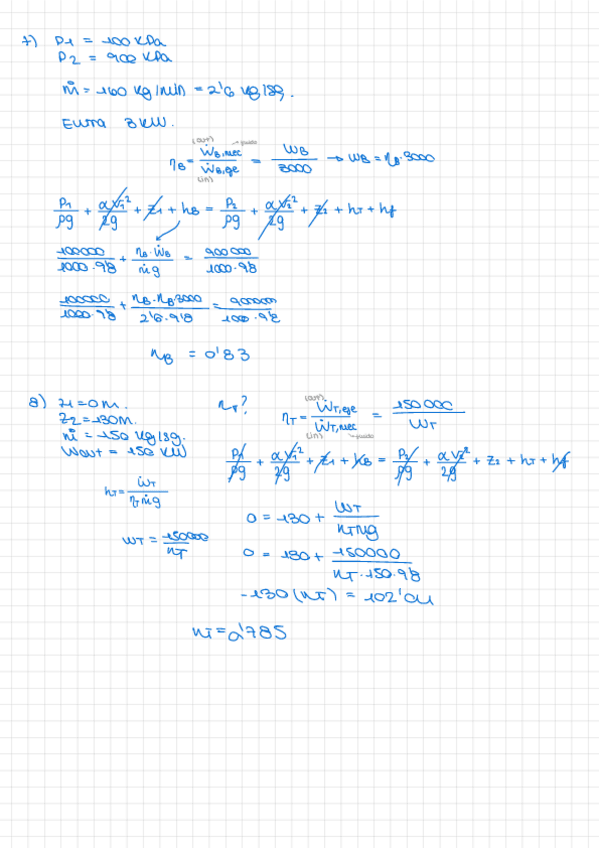 7) P1 = 100 KPa
P2 = 900 KPa
ṁ = 160 kg/min = 2'6 kg/sg.
Entra 3 kW.
(out)
ηB = ẆB,mec / ẆB,eje = WB / 3000 → WB = ηB · 3000
(in)
P1/ρg + αV1²/2g + z1 + hB = P2/ρg + αV2²/2g + z2 + hT + hf
100000/1000·9'8 + ηB·ẆB/ṁg = 900000/1000·9'8
100000/1000·9'8 + ηB·ηB·3000/2'6·9'8 = 900000/1000·9'8
ηB = 0'83
8) z1 = 0 m.
z2 = 130 m.
ṁ = 150 kg/sg.
Wout = 150 kW
ηT?
(out)
ηT = ẆT,eje / ẆT,mec = 150000 / WT
(in)
P1/ρg + αV1²/2g + z1 + hB = P2/ρg + αV2²/2g + z2 + hT + hf
hT = ẆT / ηTṁg
0 = 130 + WT / ηTṁg
WT = 150000 / ηT
0 = 130 + 150000 / ηT·150·9'8
-130 (ηT) = 102'04
ηT = 0'785